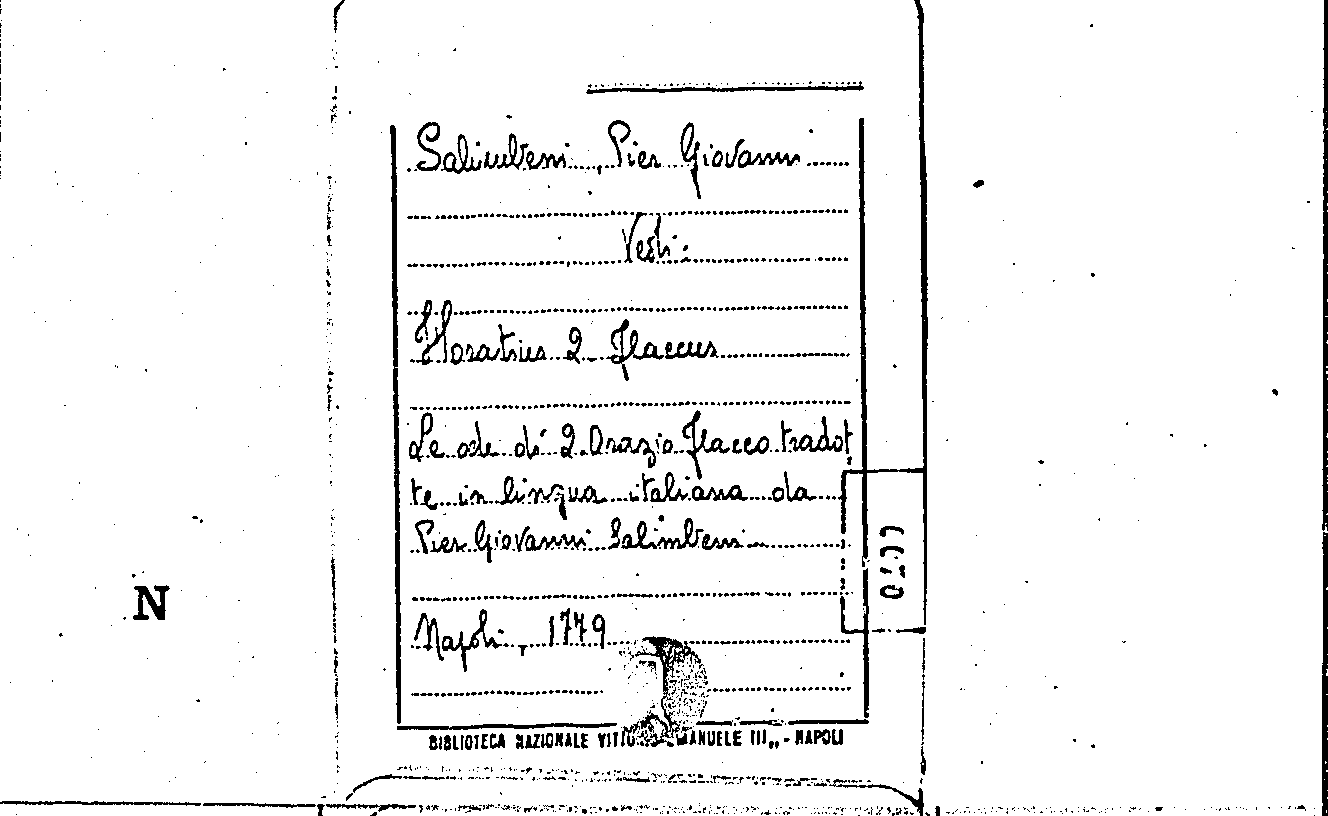 Salimbeni, Pier Giovanni
Vedi:
Horatius Q. Flaccus
Le ode di Q. Orazio Flacco tradot
te in lingua italiana da
Pier Giovanni Salimbeni
N
Napoli, 1779
BIBLIOTECA NAZIONALE VITTORIO EMANUELE III„ - NAPOLI